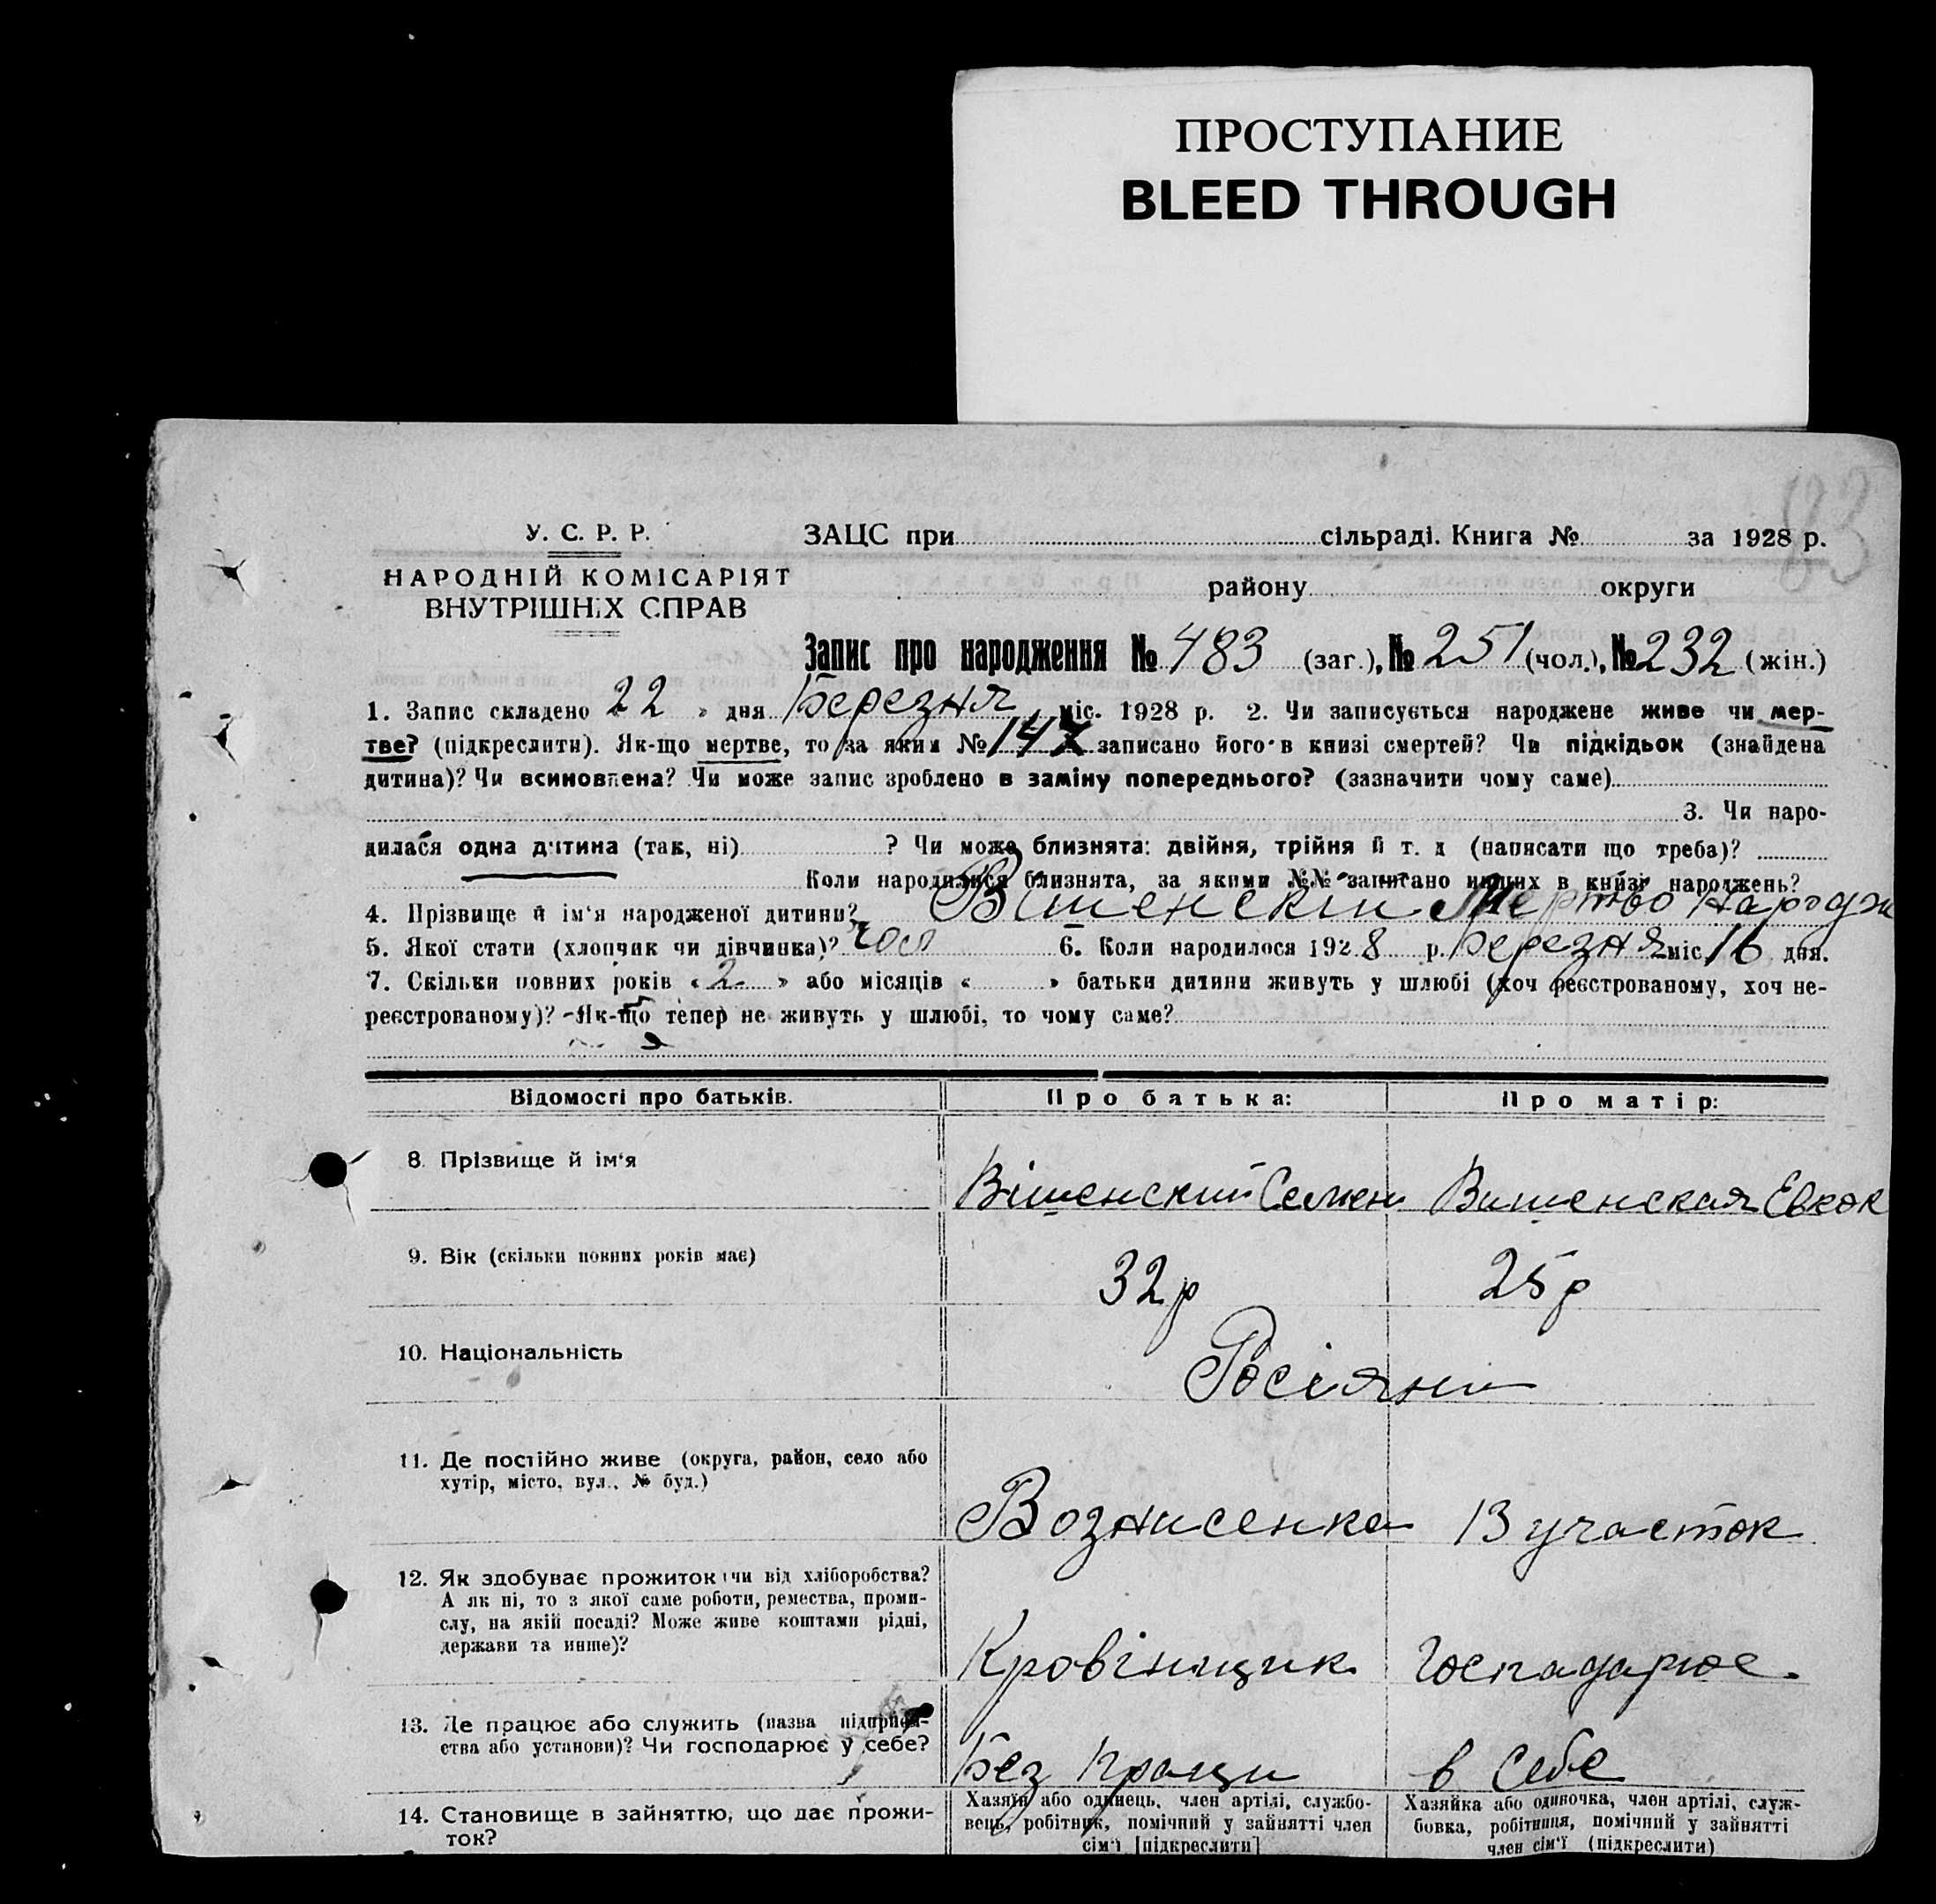 ПРОСТУПАНИЕ
BLEED THROUGH
83
У. С. Р. Р.
НАРОДНІЙ КОМІСАРІЯТ
ВНУТРІШНІХ СПРАВ
ЗАЦС при сільраді. Книга № за 1928 р.
району округи
Запис про народження № 483 (заг.), № 251 (чол.), № 232 (жін.)
1. Запис складено 22 » дня Березня міс. 1928 р. 2. Чи записується народжене живе чи мер-
тве? (підкреслити). Як-що мертве, то за яким № 147 записано його в книзі смертей? Чи підкідьок (знайдена
дитина)? Чи всиновлена? Чи може запис зроблено в заміну попереднього? (зазначити чому саме)
3. Чи наро-
дилася одна дитина (так, ні) ? Чи може близнята: двійня, трійня й т. д (написати що треба)?
Коли народилися близнята, за якими №№ записано инших в книзі народжень?
4. Прізвище й ім'я народженої дитини? Вішенский Мертво
5. Якої стати (хлопчик чи дівчинка)? чол 6. Коли народилося 1928 р. Березня міс. 16 дня.
7. Скільки повних років « 2 » або місяців « » батьки дитини живуть у шлюбі (хоч реєстрованому, хоч не-
реєстрованому)? Як-що тепер не живуть у шлюбі, то чому саме?
Відомості про батьків. Про батька: Про матір:
8. Прізвище й ім'я Вішенский Семен Вишенская Евдок
9. Вік (скільки повних років має) 32 р 25 р
10. Національність Росіяни
11. Де постійно живе (округа, район, село або
хутір, місто, вул., № буд.)
Вознисенка 13 участок
12. Як здобуває прожиток чи від хліборобства?
А як ні, то з якої саме роботи, ремества, проми-
слу, на якій посаді? Може живе коштами рідні,
держави та инше)?
Кровінщик Госпадарює.
13. Де працює або служить (назва підприєм-
ства або установи)? Чи господарює у себе?
Без праци в себе
14. Становище в зайняттю, що дає прожи-
ток?
Хазяїн або одинець, член артілі, службо-
вець, робітник, помічний у зайнятті член
сім'ї [підкреслити]
Хазяйка або одиночка, член артілі, служ-
бовка, робітниця, помічний у зайнятті
член сім'ї (підкреслити)